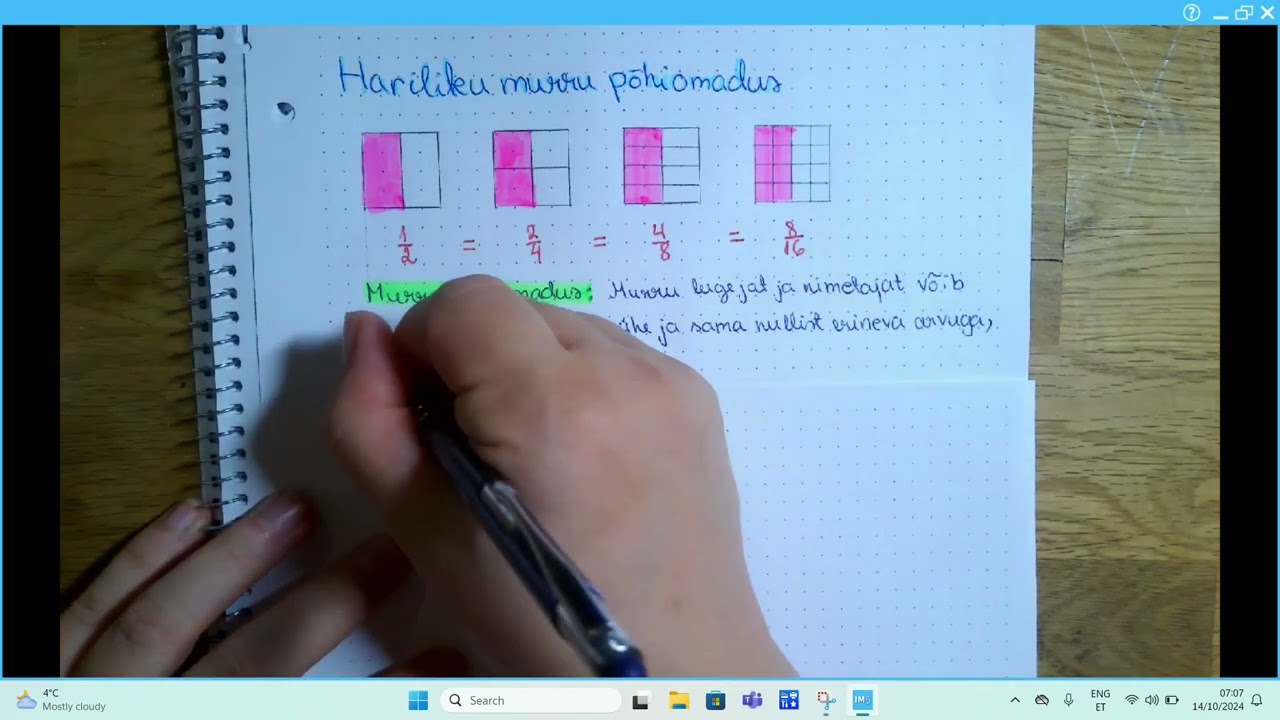 Hariliku murru põhiomadus
1/2 = 2/4 = 4/8 = 8/16
Murru lugejat ja nimetajat võib
ja sama nullist erineva arvuga,
4°C
Mostly cloudy
Search
ENG
ET
07:07
14/10/2024